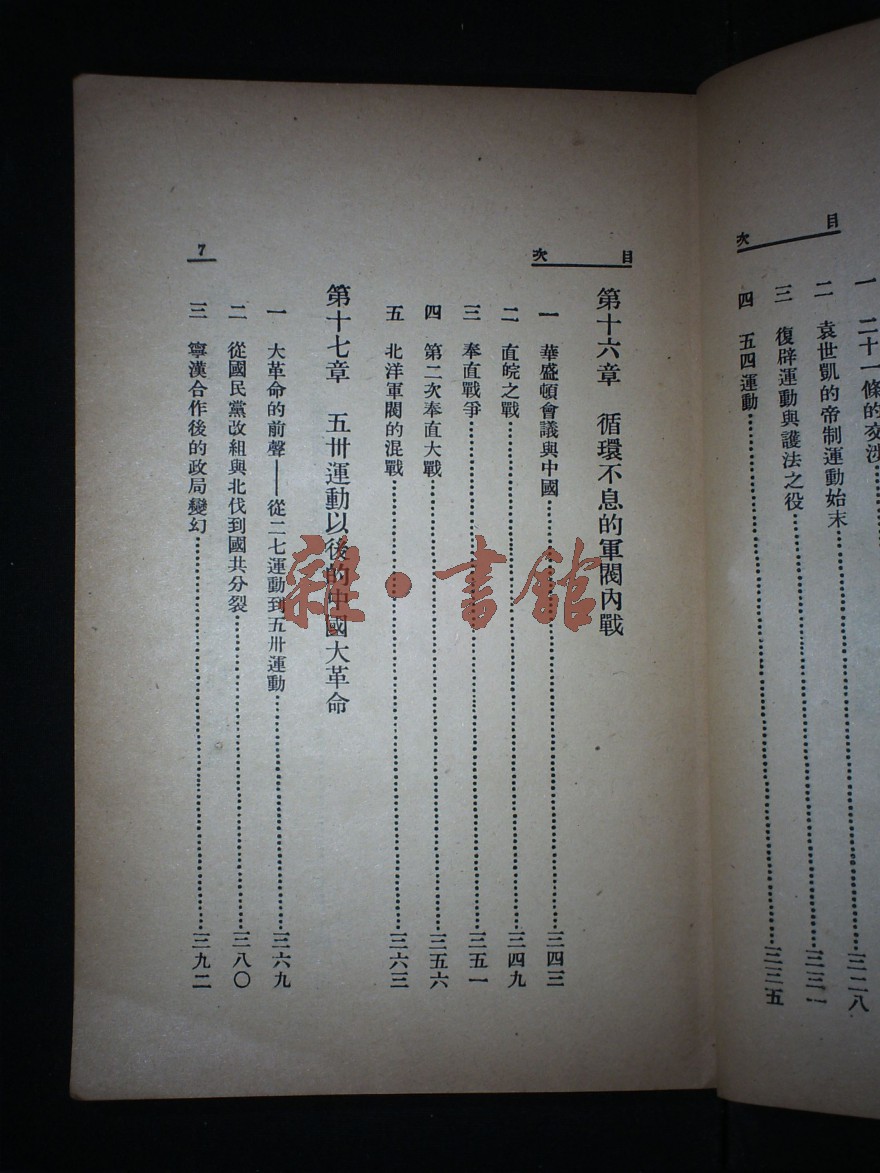 目次
一 二十一條的交涉
二 袁世凱的帝制運動始末……三二八
三 復辟運動與護法之役……三三一
四 五四運動……三三五
目次
第十六章 循環不息的軍閥內戰
一 華盛頓會議與中國……三四三
二 直皖之戰……三四九
三 奉直戰爭……三五一
四 第二次奉直大戰……三五六
五 北洋軍閥的混戰……三六三
第十七章 五卅運動以後的中國大革命
一 大革命的前聲——從二七運動到五卅運動……三六九
二 從國民黨改組與北伐到國共分裂……三八〇
三 寧漢合作後的政局變幻……三九二
7
雜·書館